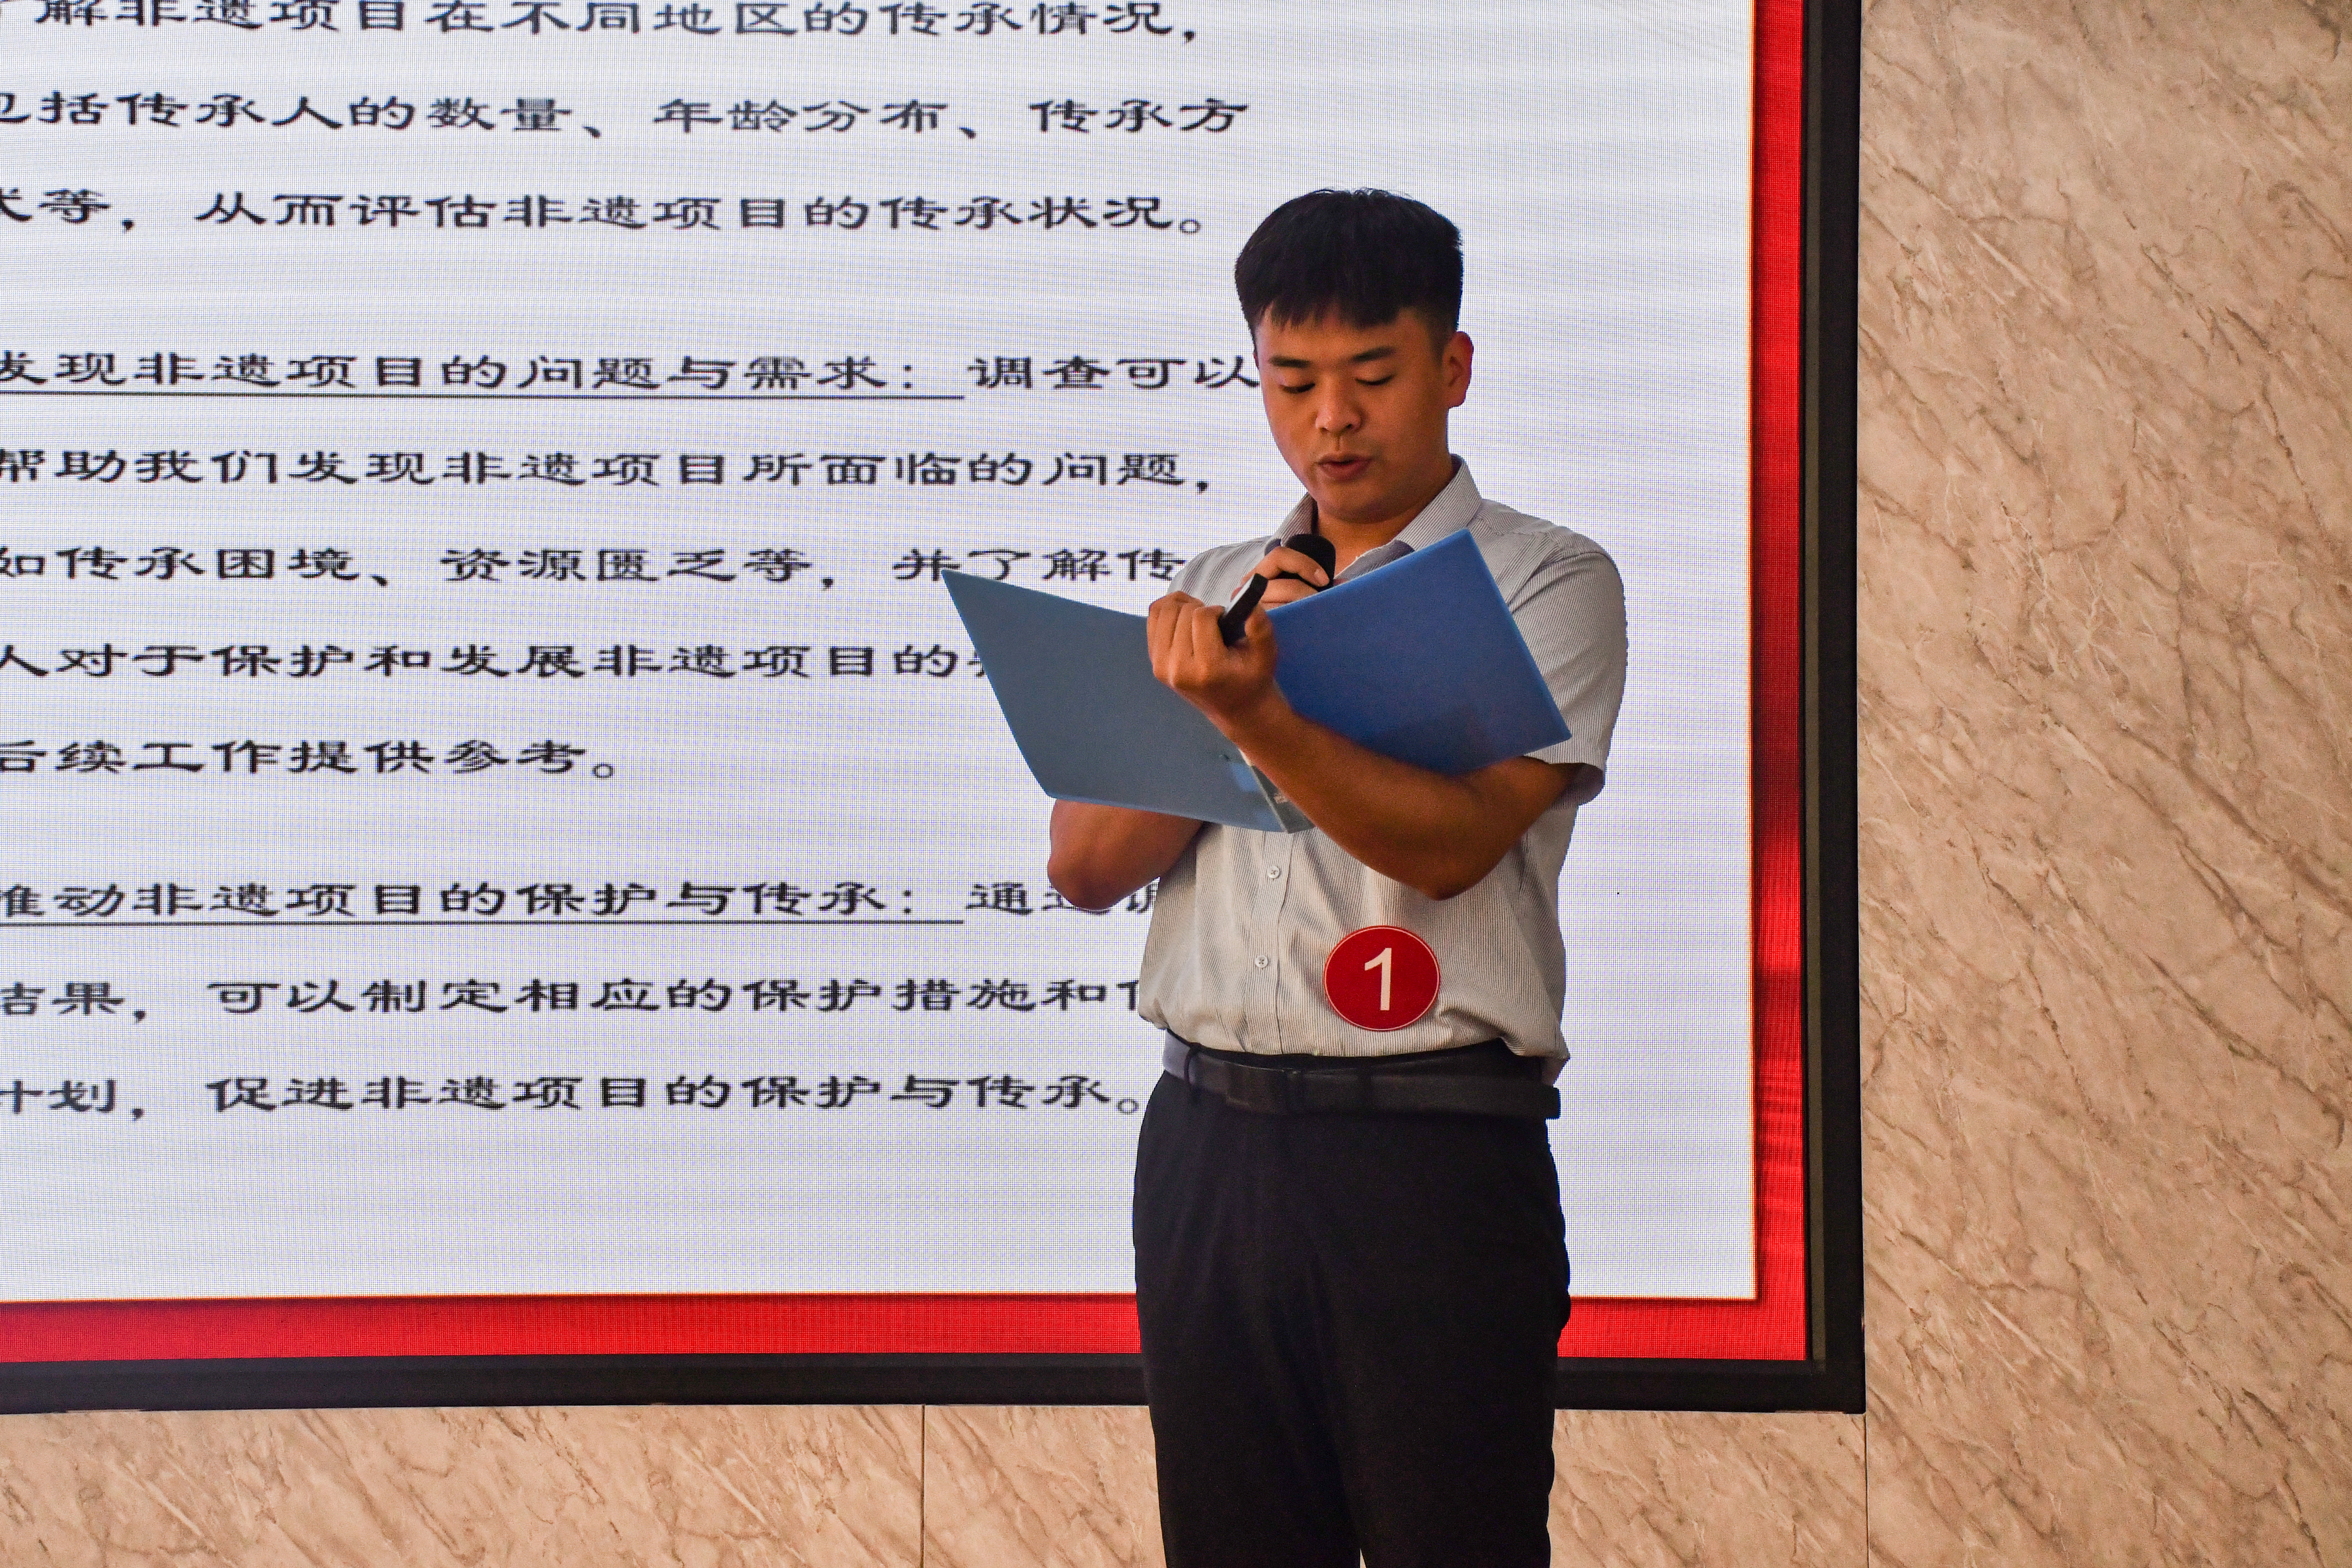 了解非遗项目在不同地区的传承情况，
包括传承人的数量、年龄分布、传承方
式等，从而评估非遗项目的传承状况。
发现非遗项目的问题与需求：调查可以
帮助我们发现非遗项目所面临的问题，
如传承困境、资源匮乏等，并了解传
人对于保护和发展非遗项目的
后续工作提供参考。
推动非遗项目的保护与传承：通过调
结果，可以制定相应的保护措施和
计划，促进非遗项目的保护与传承。
1